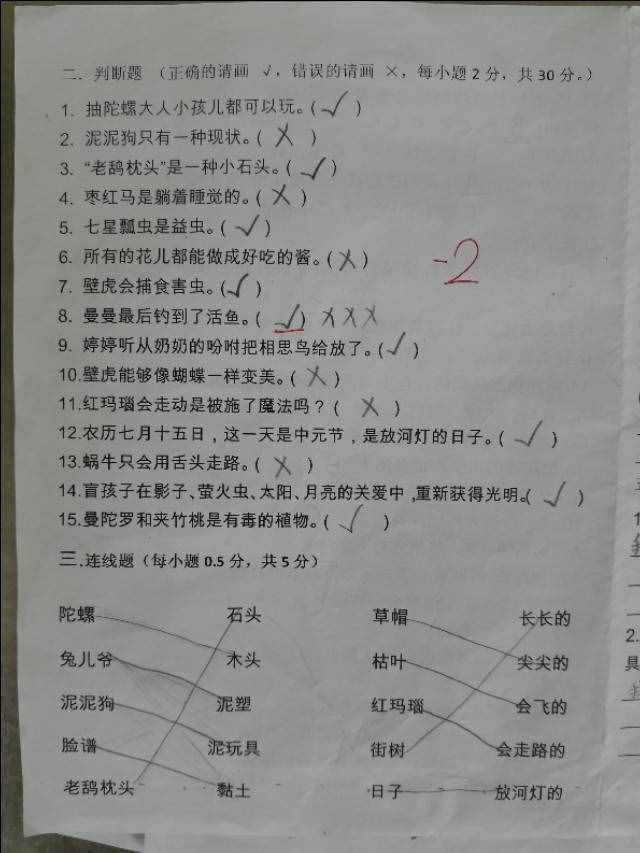 二. 判断题 （正确的请画 √，错误的请画 ×，每小题 2 分，共 30 分。）
1. 抽陀螺大人小孩儿都可以玩。( √ )
2. 泥泥狗只有一种现状。( × )
3. “老鸹枕头”是一种小石头。( √ )
4. 枣红马是躺着睡觉的。( × )
5. 七星瓢虫是益虫。( √ )
6. 所有的花儿都能做成好吃的酱。( × )
-2
7. 壁虎会捕食害虫。( √ )
8. 曼曼最后钓到了活鱼。( √ ) × × ×
9. 婷婷听从奶奶的吩咐把相思鸟给放了。( √ )
10.壁虎能够像蝴蝶一样变美。( × )
11.红玛瑙会走动是被施了魔法吗？( × )
12.农历七月十五日，这一天是中元节，是放河灯的日子。( √ )
13.蜗牛只会用舌头走路。( × )
14.盲孩子在影子、萤火虫、太阳、月亮的关爱中,重新获得光明。( √ )
15.曼陀罗和夹竹桃是有毒的植物。( √ )
三.连线题（每小题 0.5 分，共 5 分）
陀螺 石头 草帽 长长的
兔儿爷 木头 枯叶 尖尖的
泥泥狗 泥塑 红玛瑙 会飞的
脸谱 泥玩具 街树 会走路的
老鸹枕头 黏土 日子 放河灯的
2.